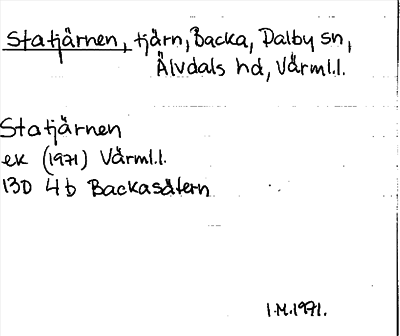 Statjärnen, tjärn, Backa, Dalby sn,
Älvdals hd, Värml.l.
Statjärnen
ek (1971) Värml.l.
13D 4b Backasätern
I.M.1971.